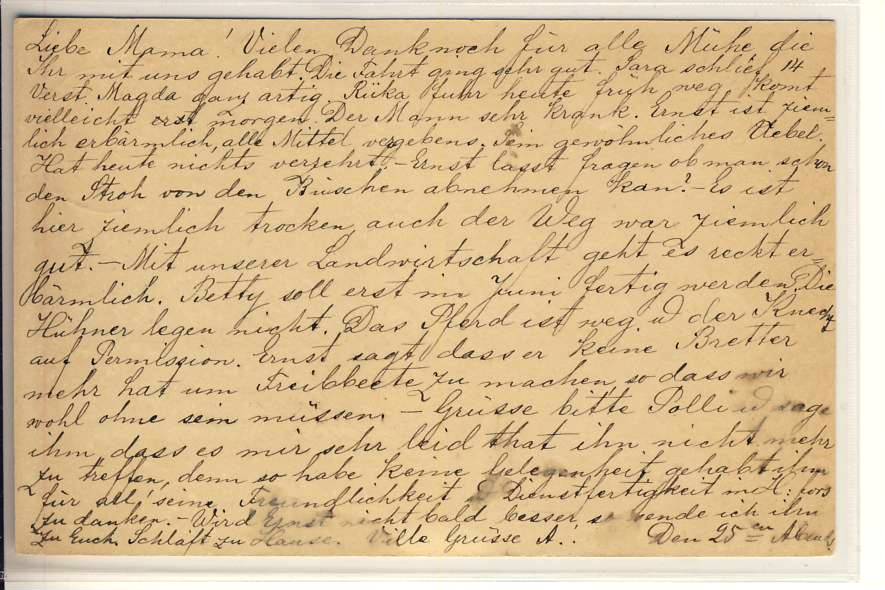 Liebe Mama! Vielen Dank noch für alle Mühe die
Ihr mit uns gehabt. Die Fahrt ging sehr gut. Sara schlief 14
Verst. Magda ganz artig. Riika fuhr heute früh weg, komt
vielleicht erst morgen. Der Mann sehr krank. Ernst ist ziem=
lich erbärmlich, alle Mittel vergebens. Sein gewöhnliches Uebel.
Hat heute nichts verzehrt. – Ernst lässt fragen ob man schon
den Stroh von den Büschen abnehmen kan? – Es ist
hier ziemlich trocken, auch der Weg war ziemlich
gut. – Mit unserer Landwirtschaft geht es reckt er=
bärmlich. Betty soll erst im Juni fertig werden. Die
Hühner legen nicht. Das Pferd ist weg u der Knecht
auf Permission. Ernst sagt, dass er keine Bretter
mehr hat um Treibbeete zu machen, so dass wir
wohl ohne sein müssen. – Grüsse bitte Polli u sage
ihm, dass es mir sehr leid that ihn nicht mehr
zu treffen, denn so habe keine Gelegenheit gehabt ihm
für all' seine Freundlichkeit u Dienstfertigkeit in
zu danken. – Wird Ernst nicht bald besser, so sende ich ihn
zu Euch. Schläft zu Hause. Ville Grüsse A. Den 25 en Abends.